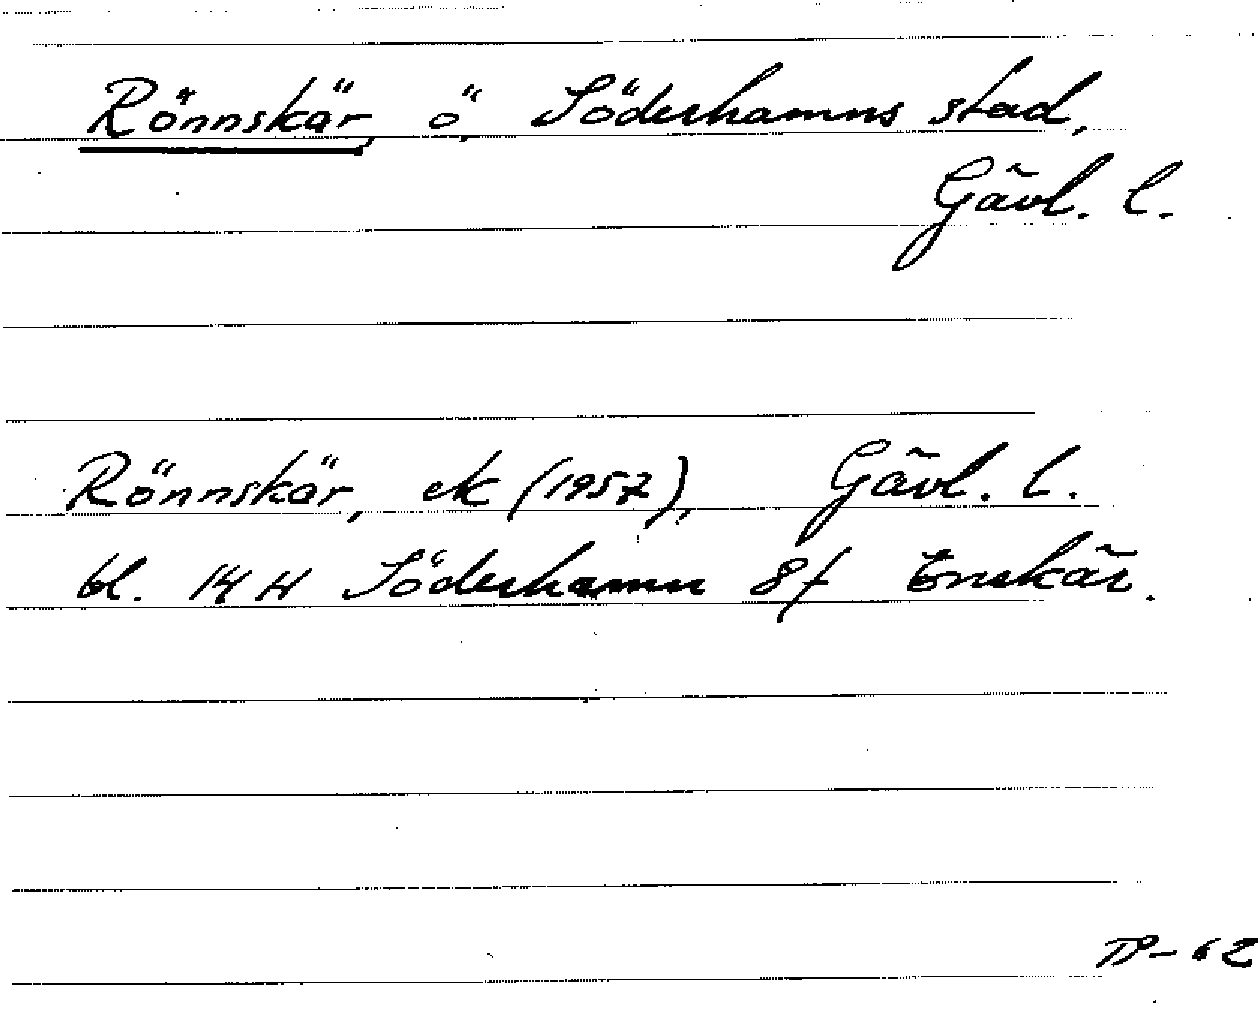 Rönnskär, ö, Söderhamns stad,
Gävl. l.
Rönnskär, ek (1957), Gävl. l.
bl. 14 H Söderhamn 8f Enskär.
TP-62